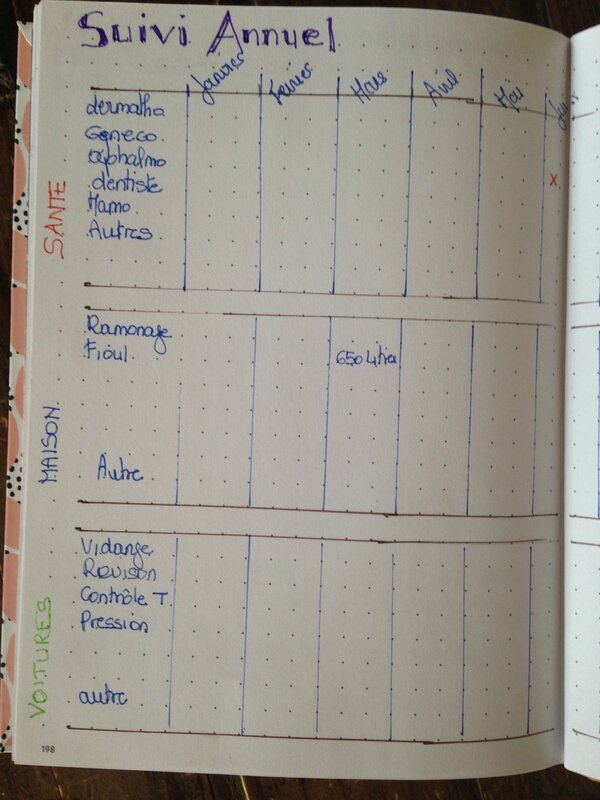 Suivi Annuel
Janvier Fevrier Mars Avril Mai
SANTE
dermatho
Geneco.
Ophalmo
dentiste x
Mamo
Autres
MAISON
Ramonage
Fioul 650 Litres
Autre
VOITURES
Vidange
Revison
Contrôle T.
Pression
autre
198